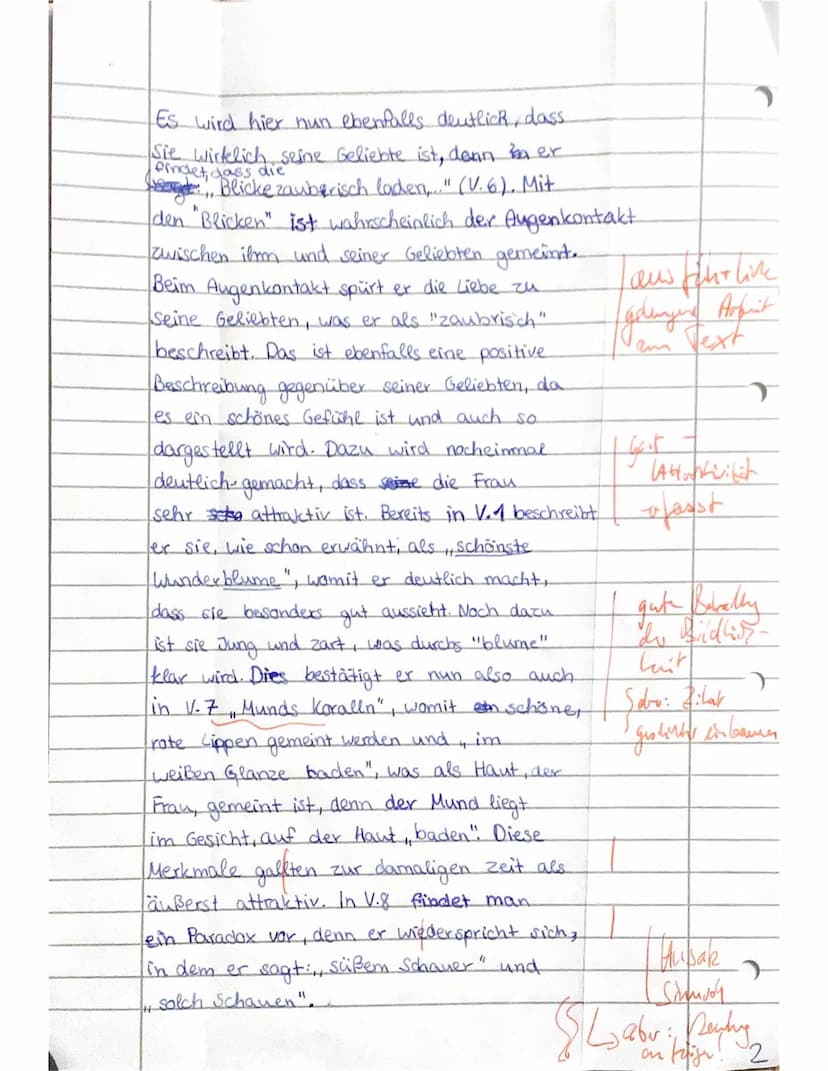 Es wird hier nun ebenfalls deutlich, dass
sie wirklich seine Geliebte ist, denn er
findet, dass die
„Blicke zauberisch laden,..." (V.6). Mit
den "Blicken" ist wahrscheinlich der Augenkontakt
zwischen ihm und seiner Geliebten gemeint.
Beim Augenkontakt spürt er die Liebe zu
seine Geliebten, was er als "zaubrisch"
beschreibt. Das ist ebenfalls eine positive
Beschreibung gegenüber seiner Geliebten, da
es ein schönes Gefühl ist und auch so
dargestellt wird. Dazu wird nocheinmal
deutlich gemacht, dass seine die Frau
sehr attraktiv ist. Bereits in V.1 beschreibt
er sie, wie schon erwähnt, als „schönste
Wunderblume", womit er deutlich macht,
dass sie besonders gut aussieht. Noch dazu
ist sie Jung und zart, was durchs "blume"
klar wird. Dies bestätigt er nun also auch
in V.7 „Munds Koralln", womit schöne,
rote Lippen gemeint werden und „im
weißen Glanze baden", was als Haut, der
Frau, gemeint ist, denn der Mund liegt
im Gesicht, auf der Haut „baden". Diese
Merkmale gallten zur damaligen zeit als
äußerst attraktiv. In V.8 findet man
ein Paradox vor, denn er wiederspricht sich,
in dem er sagt: „süßem Schauer" und
„solch Schauen".
ausführliche
gelungene Arbeit
am Text
gut -
Attraktivität
erfasst
gute
der Bildlich-
keit
aber: Zitat
geschickter einbauen
aber:
2